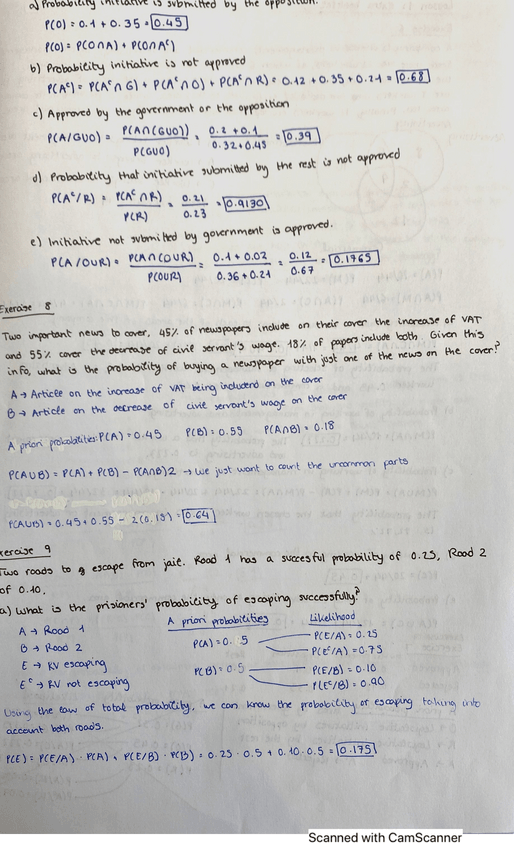 a) Probability initiative is submitted by the opposition.
P(O) = 0.1 + 0.35 = 0.45
P(O) = P(O∩A) + P(O∩Aᶜ)
b) Probability initiative is not approved
P(Aᶜ) = P(Aᶜ∩G) + P(Aᶜ∩O) + P(Aᶜ∩R) = 0.12 + 0.35 + 0.21 = 0.68
c) Approved by the government or the opposition
P(A/GUO) = P(A∩(GUO)) / P(GUO) = 0.2 + 0.1 / 0.32 + 0.45 = 0.39
d) Probability that initiative submitted by the rest is not approved
P(Aᶜ/R) = P(Aᶜ∩R) / P(R) = 0.21 / 0.23 = 0.9130
e) Initiative not submitted by government is approved.
P(A/OUR) = P(A∩(OUR)) / P(OUR) = 0.1 + 0.02 / 0.36 + 0.21 = 0.12 / 0.67 = 0.1765
Exercise 8
Two important news to cover, 45% of newspapers include on their cover the increase of VAT
and 55% cover the decrease of civil servant's wage. 18% of papers include both. Given this
info, what is the probability of buying a newspaper with just one of the news on the cover?
A → Article on the increase of VAT being includend on the cover
B → Article on the decrease of civil servant's wage on the cover
A priori probabilites: P(A) = 0.45 P(B) = 0.55 P(A∩B) = 0.18
P(AUB) = P(A) + P(B) - P(A∩B)2 → We just want to count the uncommon parts
P(AUB) = 0.45 + 0.55 - 2(0.18) = 0.64
Exercise 9
Two roads to escape from jail. Road 1 has a succesful probability of 0.25, Road 2
of 0.10.
a) What is the prisioners' probability of escaping successfully?
A priori probabilities Likelihood
A → Road 1
B → Road 2
E → RV escaping
Eᶜ → RV not escaping
P(A) = 0.5
P(E/A) = 0.25
P(Eᶜ/A) = 0.75
P(B) = 0.5
P(E/B) = 0.10
P(Eᶜ/B) = 0.90
Using the law of total probability, we can know the probability of escaping taking into
account both roads.
P(E) = P(E/A) · P(A) + P(E/B) · P(B) = 0.25 · 0.5 + 0.10 · 0.5 = 0.175
Scanned with CamScanner